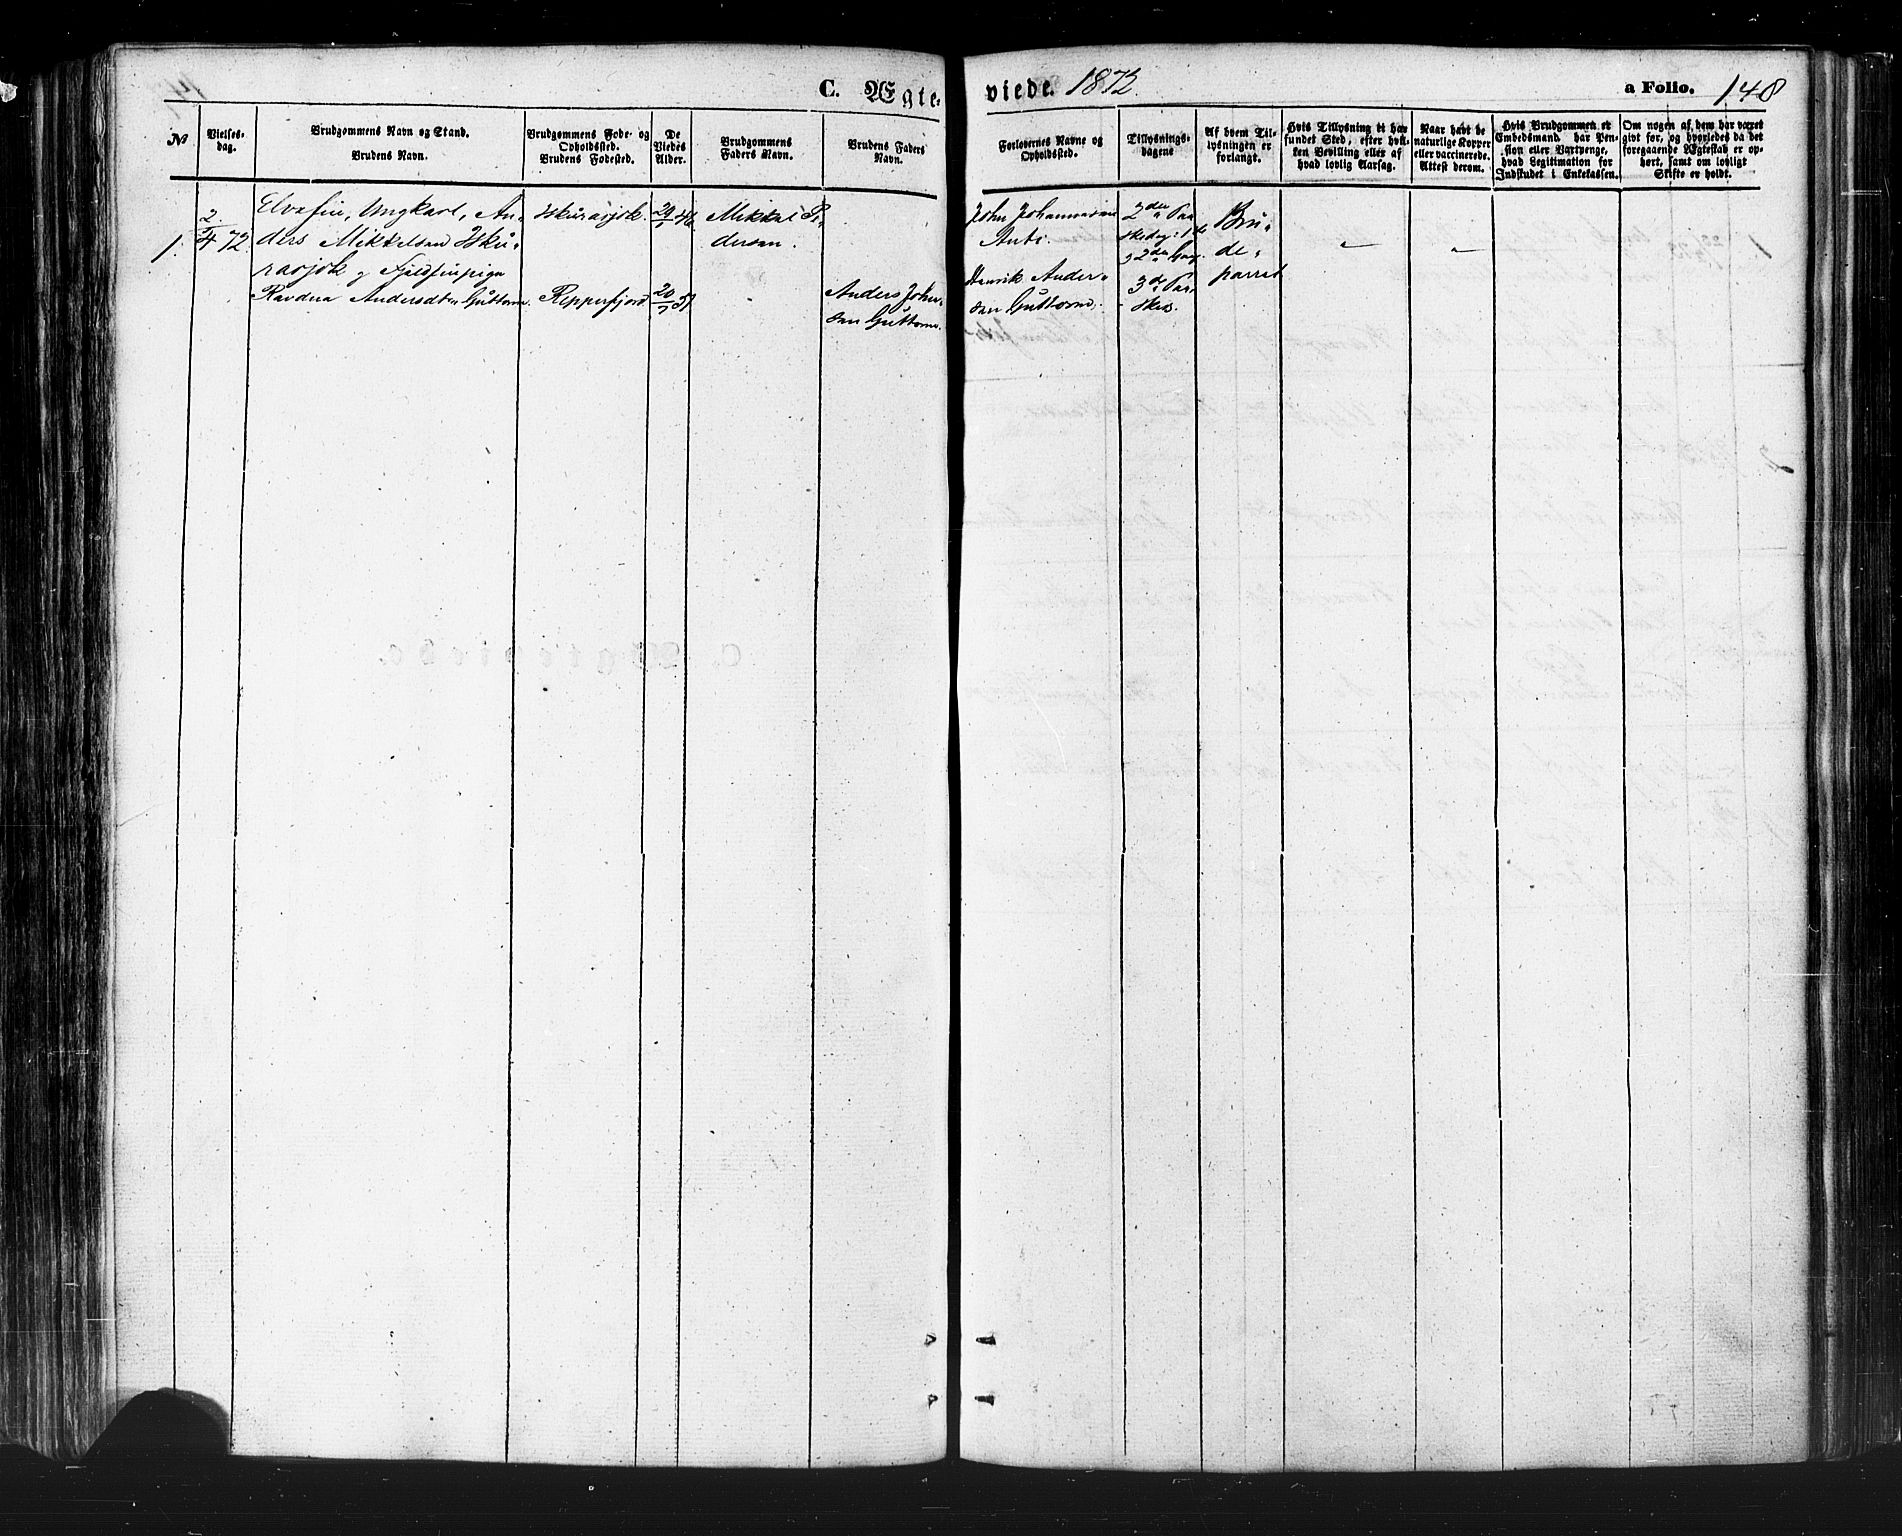 C. Ægte-
viede. 1872.
a Folio. 148
No
Vielses-
dag.
Brudgommens Navn og Stand.
Brudens Navn.
Brudgommens Føde- og
Opholdssted.
Brudens Fødested.
De
Viedes
Alder.
Brudgommens
Faders Navn.
Brudens Faders
Navn.
Forlovernes Navne og
Opholdssted.
Tillysnings-
dagene
Af hvem Til-
lysningen er
forlangt.
Hvis Tillysning ei har
fundet Sted, efter hvil-
ken Bevilling eller af
hvad lovlig Aarsag.
Naar havt de
naturlige Kopper
eller vaccinerede.
Attest derom.
Hvis Brudgommen er
Embedsmand har Pen-
sion eller Vartpenge,
hvad Legitimation for
Indskudet i Enkekassen.
Om nogen af dem har været
gift før, og hvorledes da det
foregaaende Ægteskab er op-
hørt, samt om lovligt
Skifte er holdt.
1.
2
4 72.
Elvefin, Ungkarl, An-
ders Mikkelsen Isku-
rasjok og Fjeldfinpige
Ravdna Andersdtr Guttorm.
Iskurasjok.
Repperfjord
29
46
20
51
Mikkel Pe-
dersen.
Anders John-
sen Guttorm.
John Johannesen
Anti.
Henrik Ander-
sen Guttorm.
2den Paa
skedag: 1de
3 2den Gang.
3de Paa
skes.
Bru-
de-
parret
"
"